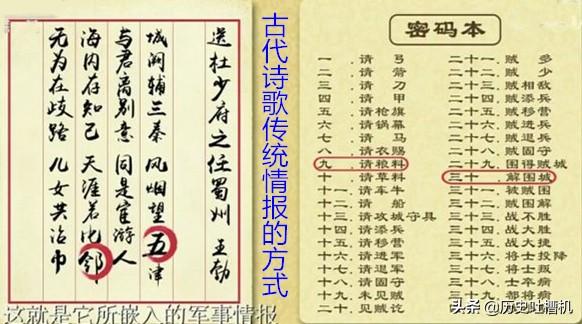 送杜少府之任蜀州 王勃
城阙辅三秦 风烟望五津
与君离别意 同是宦游人
海内存知己 天涯若比邻
无为在歧路 儿女共沾巾
古代诗歌传统情报的方式
密码本
一 .请 弓
二 .请 箭
三 .请 刀
四 .请 甲
五 .请枪旗
六 .请锅幕
七 .请 马
八 .请衣赐
九 .请粮料
十 .请草料
十一.请车牛
十二.请 船
十三.请攻城守具
十四.请添兵
十五.请移营
十六.请进军
十七.请退军
十八.请固守
十九.未见贼
二十.见贼讫
二十一.贼 多
二十二.贼 少
二十三.贼相敌
二十四.贼添兵
二十五.贼移营
二十六.贼进兵
二十七.贼退兵
二十八.贼固守
二十九.围得贼城
三十 .解围城
三十一.被贼围
三十二.贼围解
三十三.战不胜
三十四.战大胜
三十五.战大捷
三十六.将士投降
三十七.将士叛
三十八.士卒病
三十九.都将病
这就是它所嵌入的军事情报
头条 @历史吐槽机